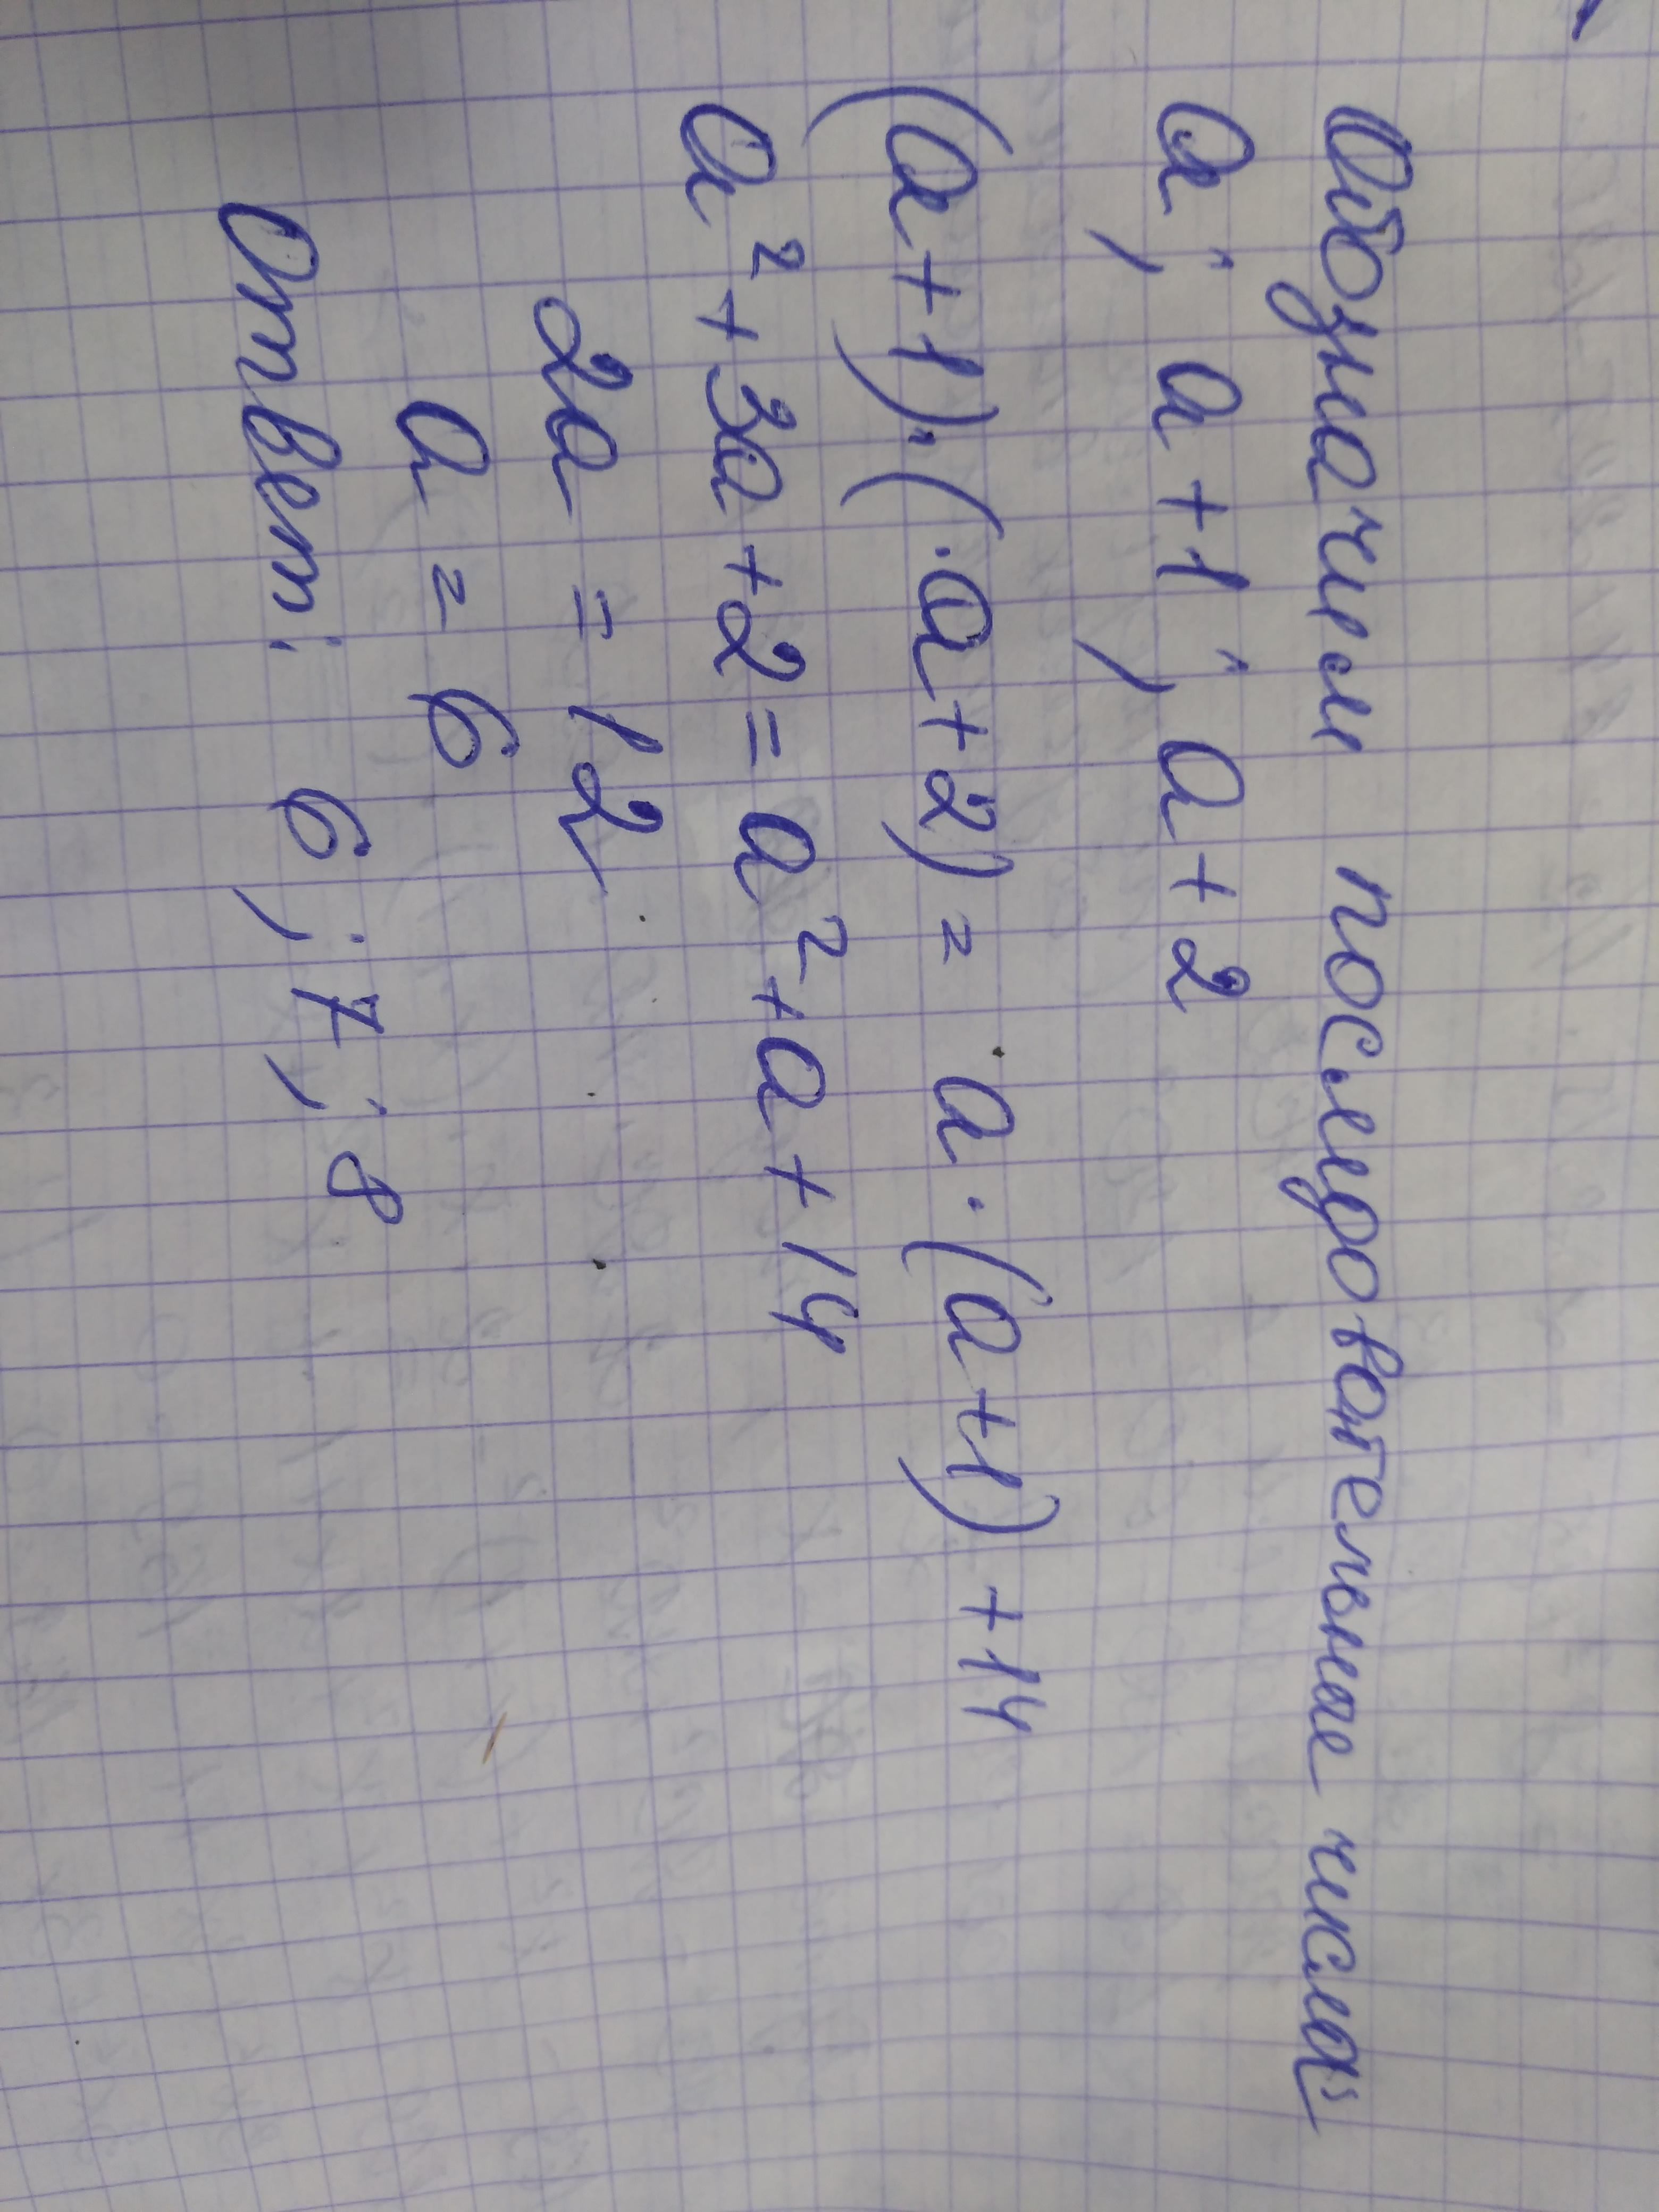 Обозначим последовательные числа
a; a+1; a+2
(a+1)·(a+2) = a·(a+1) + 14
a² + 3a + 2 = a² + a + 14
2a = 12
a = 6
Ответ: 6; 7; 8